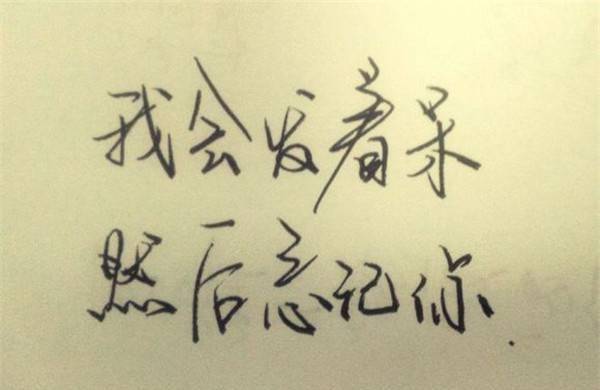 我会发着呆
然后忘记你.